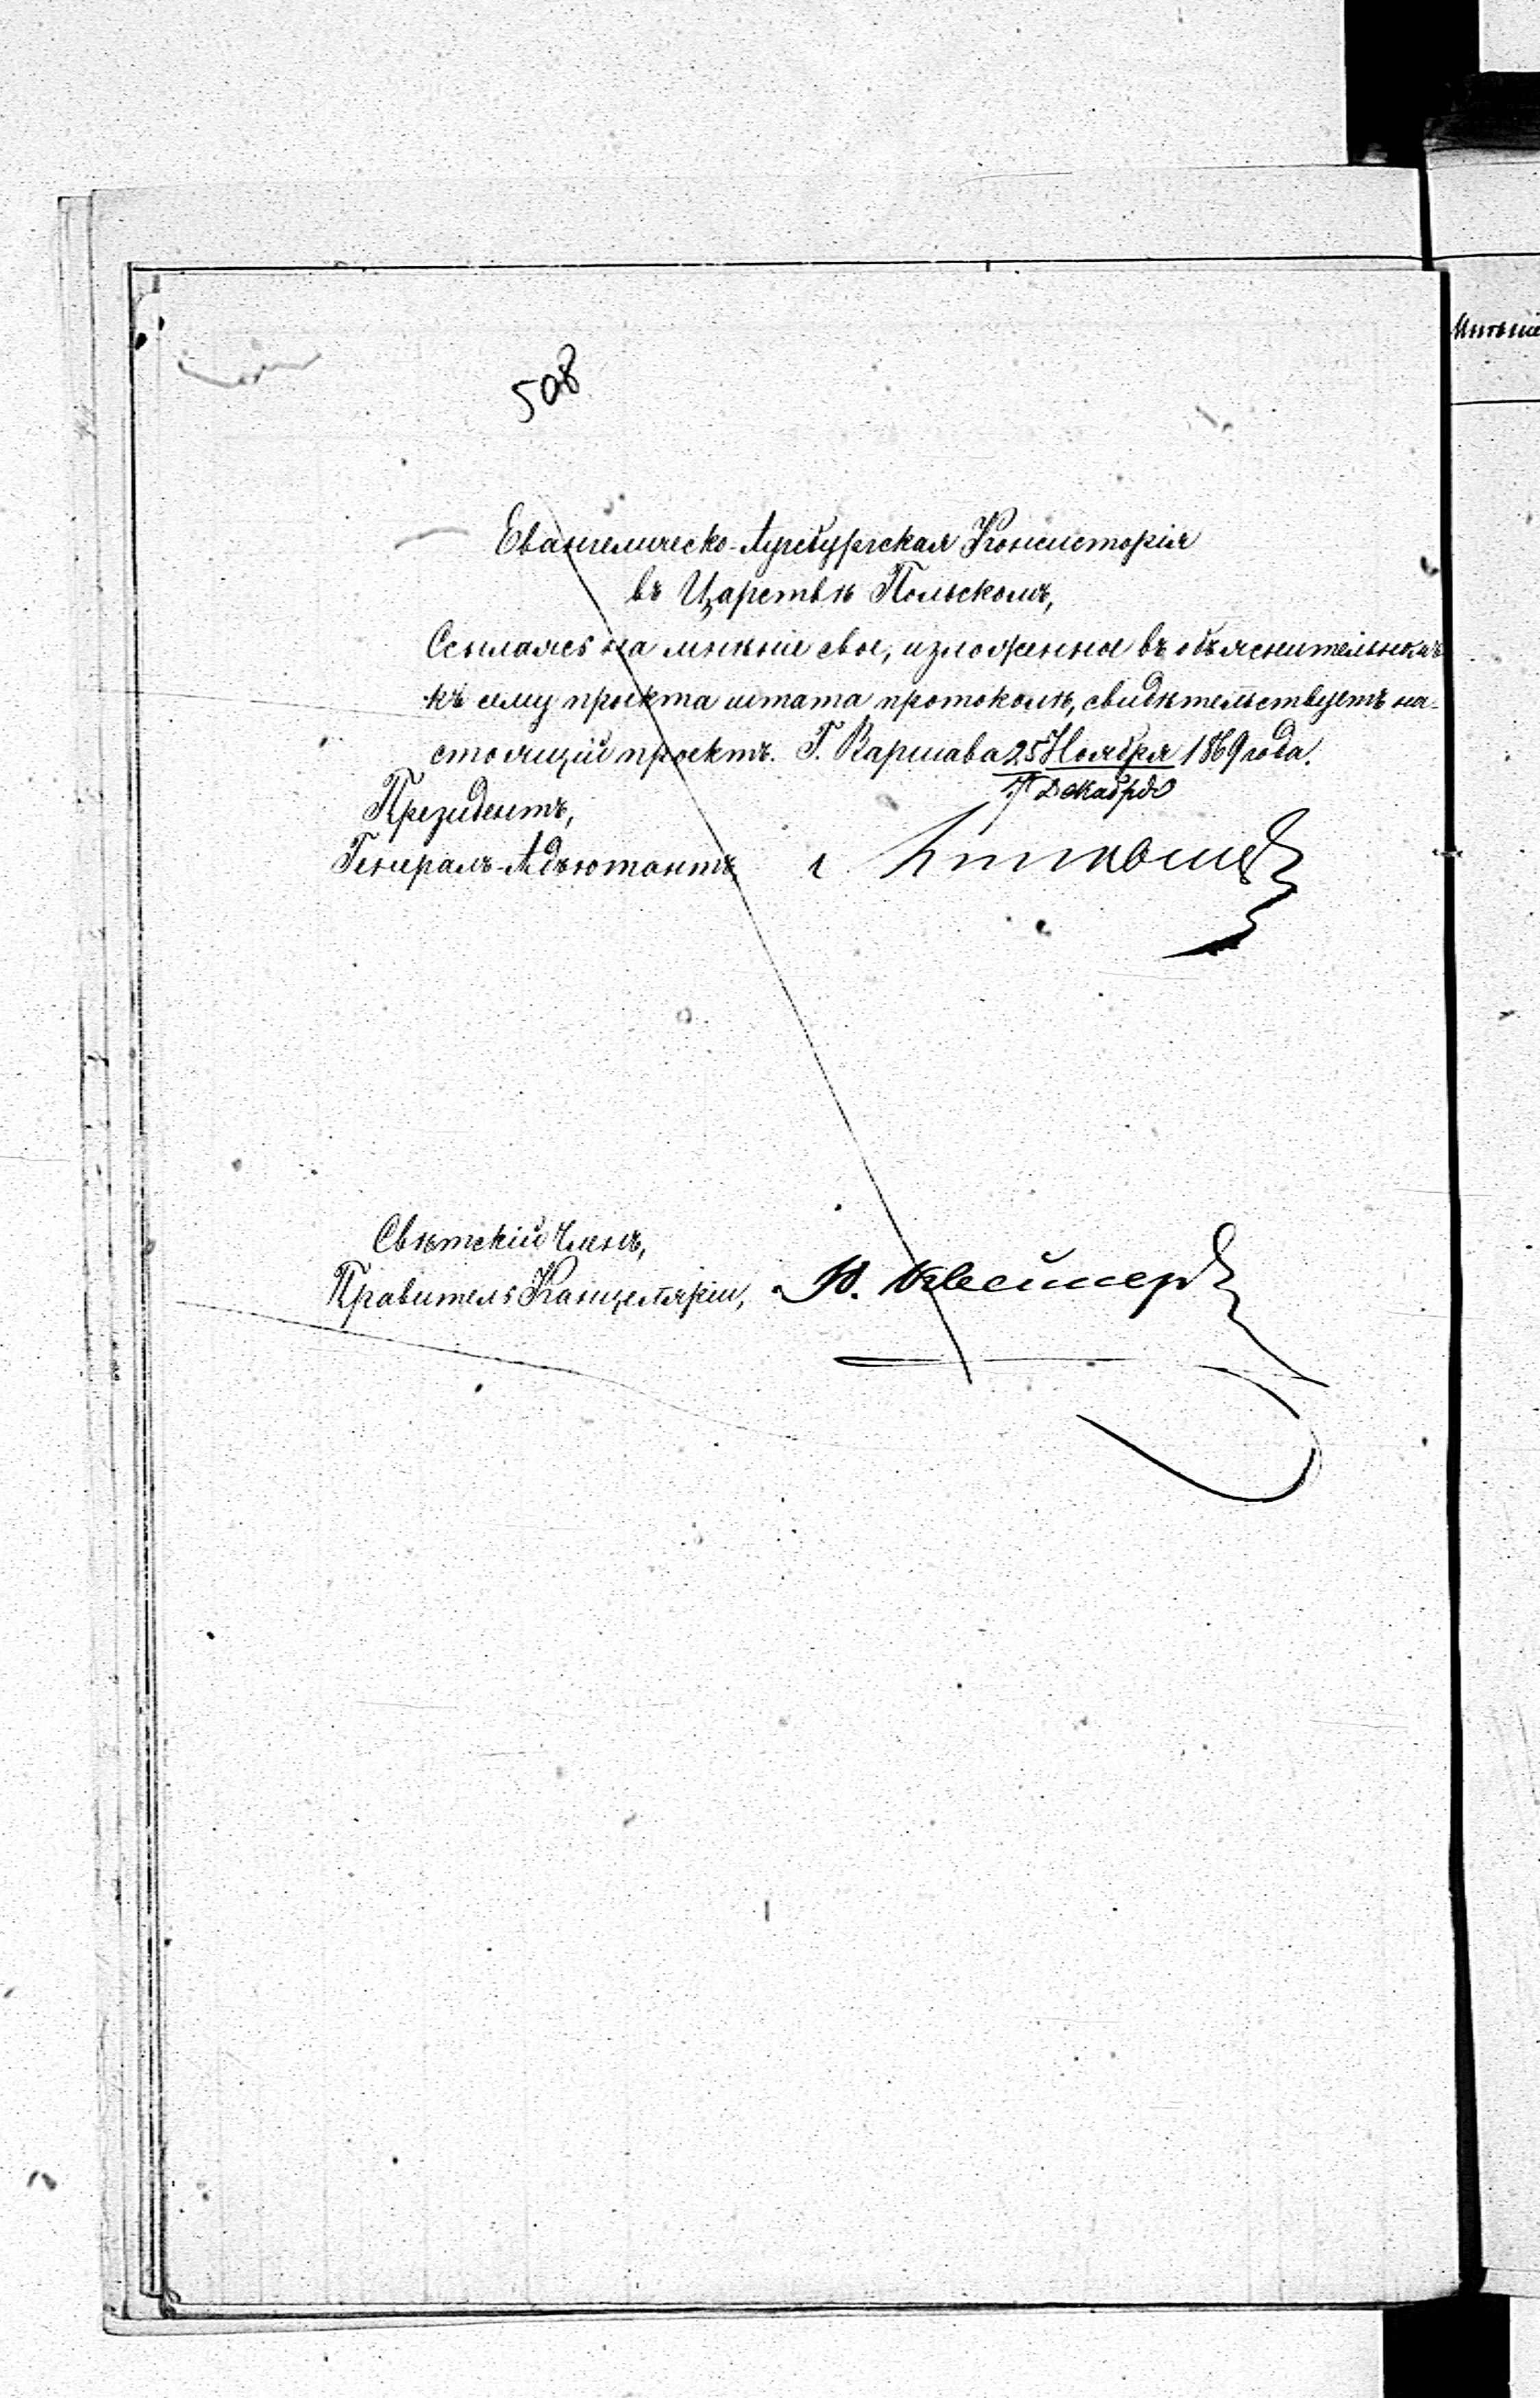 508
Евангелическо-Аугсбургская Консисторія
въ Царствѣ Польскомъ,
Ссылаясь на мнѣніе свое, изложенное въ объяснительномъ
къ сему проекта штата протоколѣ, свидѣтельствуетъ на-
стоящій проектъ. Г. Варшава 25 Ноября 1869 года.
7 Декабря
Президентъ,
Генералъ-Адъютантъ,
Свѣтскій Членъ,
Правитель Канцеляріи,